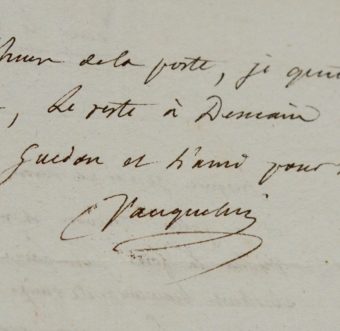 de la poste, je
, le reste à Demain
Guedon et l'ami pour
Vauquelin